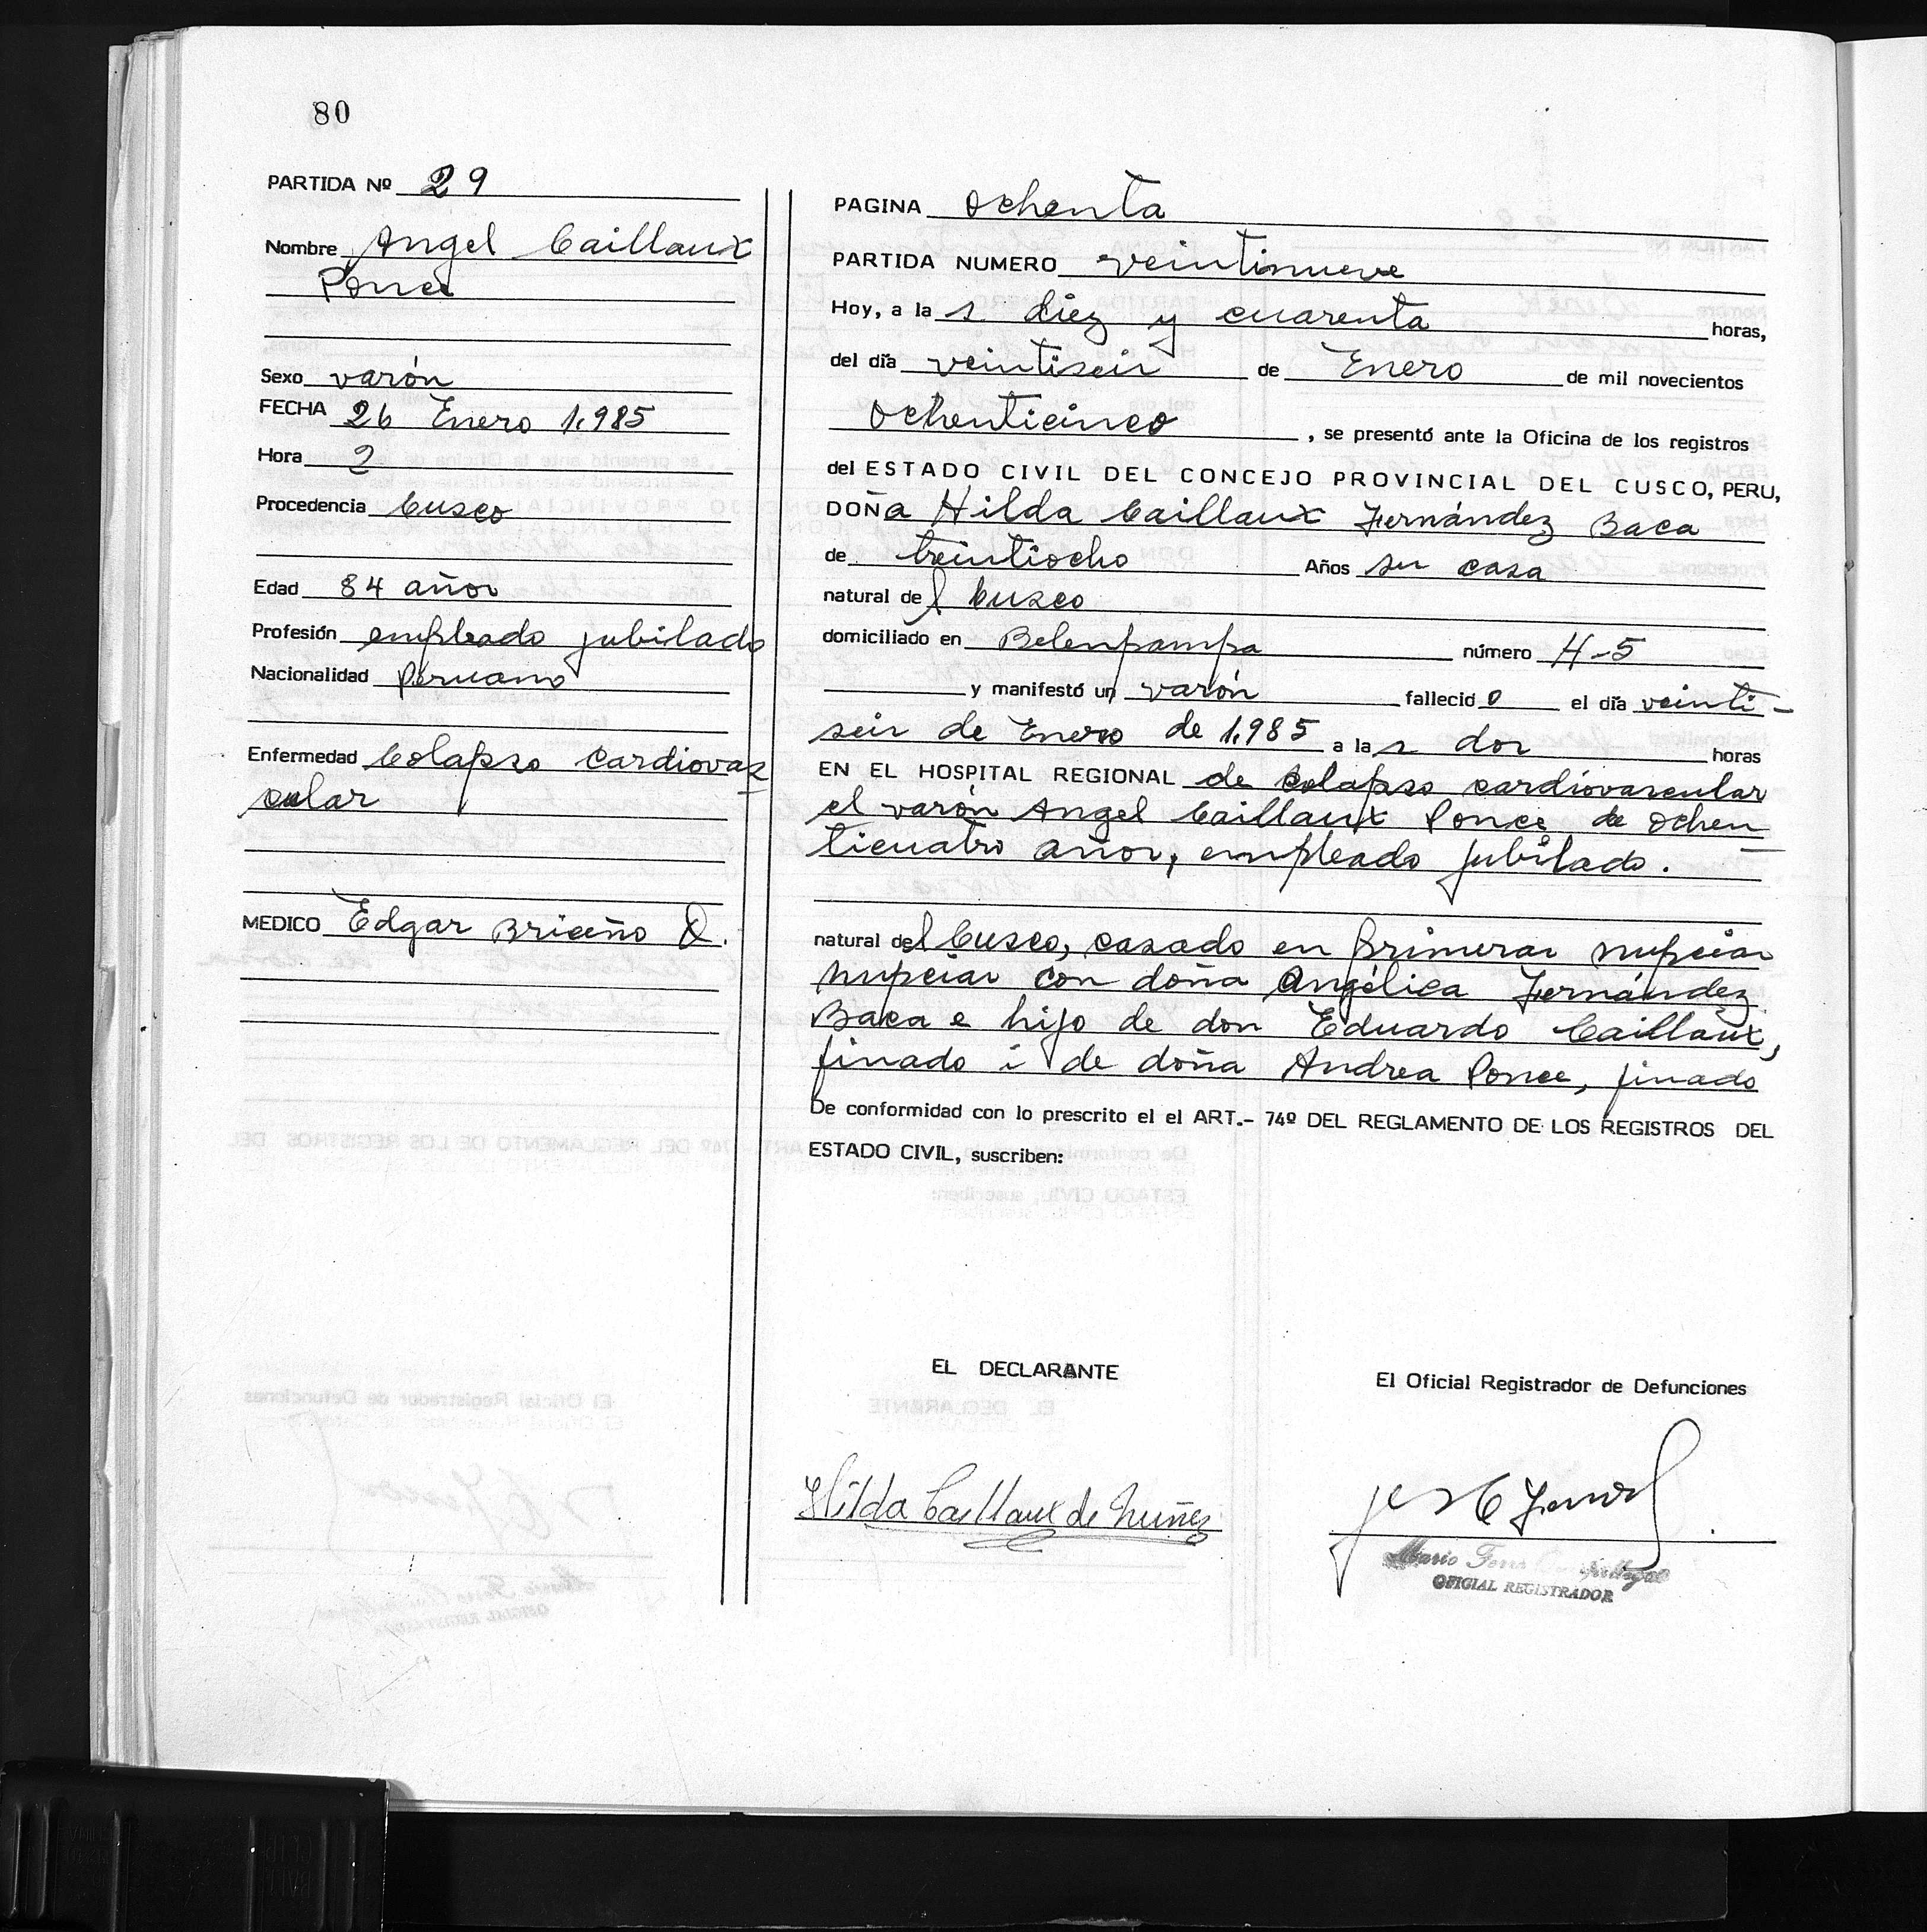 80
PARTIDA Nº 29
Nombre Angel Caillaux
Ponce
Sexo varón
FECHA 26 Enero 1.985
Hora 2
Procedencia Cusco
Edad 84 años
Profesión empleado jubilado
Nacionalidad Peruano
Enfermedad Colapso Cardiovas
cular
MEDICO Edgar Briceño Q.
PAGINA Ochenta
PARTIDA NUMERO veintinueve
Hoy, a la s diez y cuarenta horas,
del día veintiseis de Enero de mil novecientos
Ochenticinco, se presentó ante la Oficina de los registros
del ESTADO CIVIL DEL CONCEJO PROVINCIAL DEL CUSCO, PERU,
DOÑa Hilda Caillaux Fernández Baca
de treintiocho Años su casa
natural del Cusco
domiciliado en Belenpampa número H-5
y manifestó un varón fallecido el día veinti-
seis de Enero de 1.985 a la s dos horas
EN EL HOSPITAL REGIONAL de colapso cardiovascular
el varón Angel Caillaux Ponce de ochen
ticuatro años, empleado jubilado.
natural del Cusco, casado en primeras nupcias
nupcias con doña Angélica Fernández
Baca e hijo de don Eduardo Caillaux,
finado i de doña Andrea Ponce, finado
De conformidad con lo prescrito el el ART.- 74º DEL REGLAMENTO DE LOS REGISTROS DEL
ESTADO CIVIL, suscriben:
EL DECLARANTE
El Oficial Registrador de Defunciones
Hilda Caillaux de Nuñez
Mario
OFICIAL REGISTRADOR